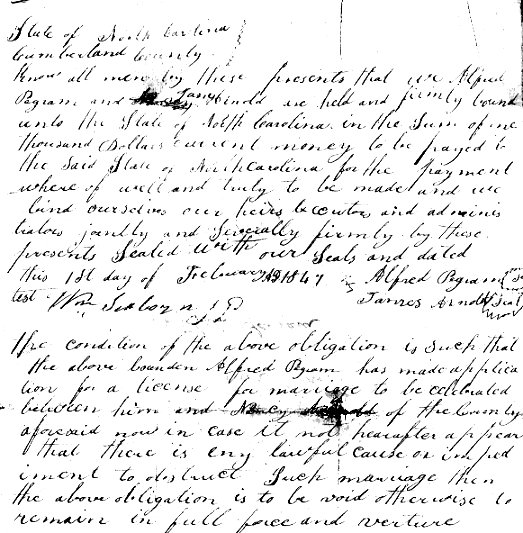 State of North Carolina
Cumberland County
Know all men by these presents that we Alfred
Pegram and James Arnold are held and firmly bound
unto the State of North Carolina in the Sum of one
thousand Dollars current money to be payed to
the Said State of North carolina for the payment
where of well and truly to be made and we
bind ourselves our heirs Executors and adminis
trators jointly and Severally firmly by these
presents Sealed With our Seals and dated
this 1st day of February AD 1847 Alfred Pegram Seal
test Wm Seaborn JP James Arnold Seal
The condition of the above obligation is Such that
the above bounden Alfred Pegram has made applica
tion for a license for marriage to be celebrated
between him and Nancy Arnold of the County
aforesaid now in case it not hearafter appear
that there is eny lawful cause or imped
iment to obstruct Such marriage then
the above obligation is to be void otherwise to
remain in full force and verture